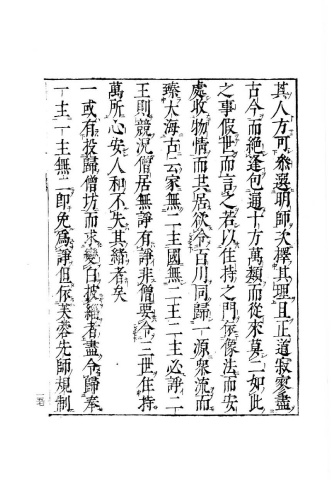 其人方可參選明師次擇其理且正道寂寥盡
古今而絕逢包通十方萬類而從來莫二如此
之事假世而言之若以住持之門依像法而安
處收物情而其居欲令百川同歸一源眾流而
臻大海古云家無二主國無二王二主必諍二
王則競況僧居無諍有諍非僧要令三世住持
萬所心安人和不失其緒者矣
一或有投歸僧坊而求變白披緇者盡令歸奉
一主一主無二即免為諍但依芙蓉先師規制